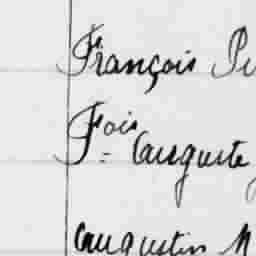 François
Fois
F= Auguste
Augustin